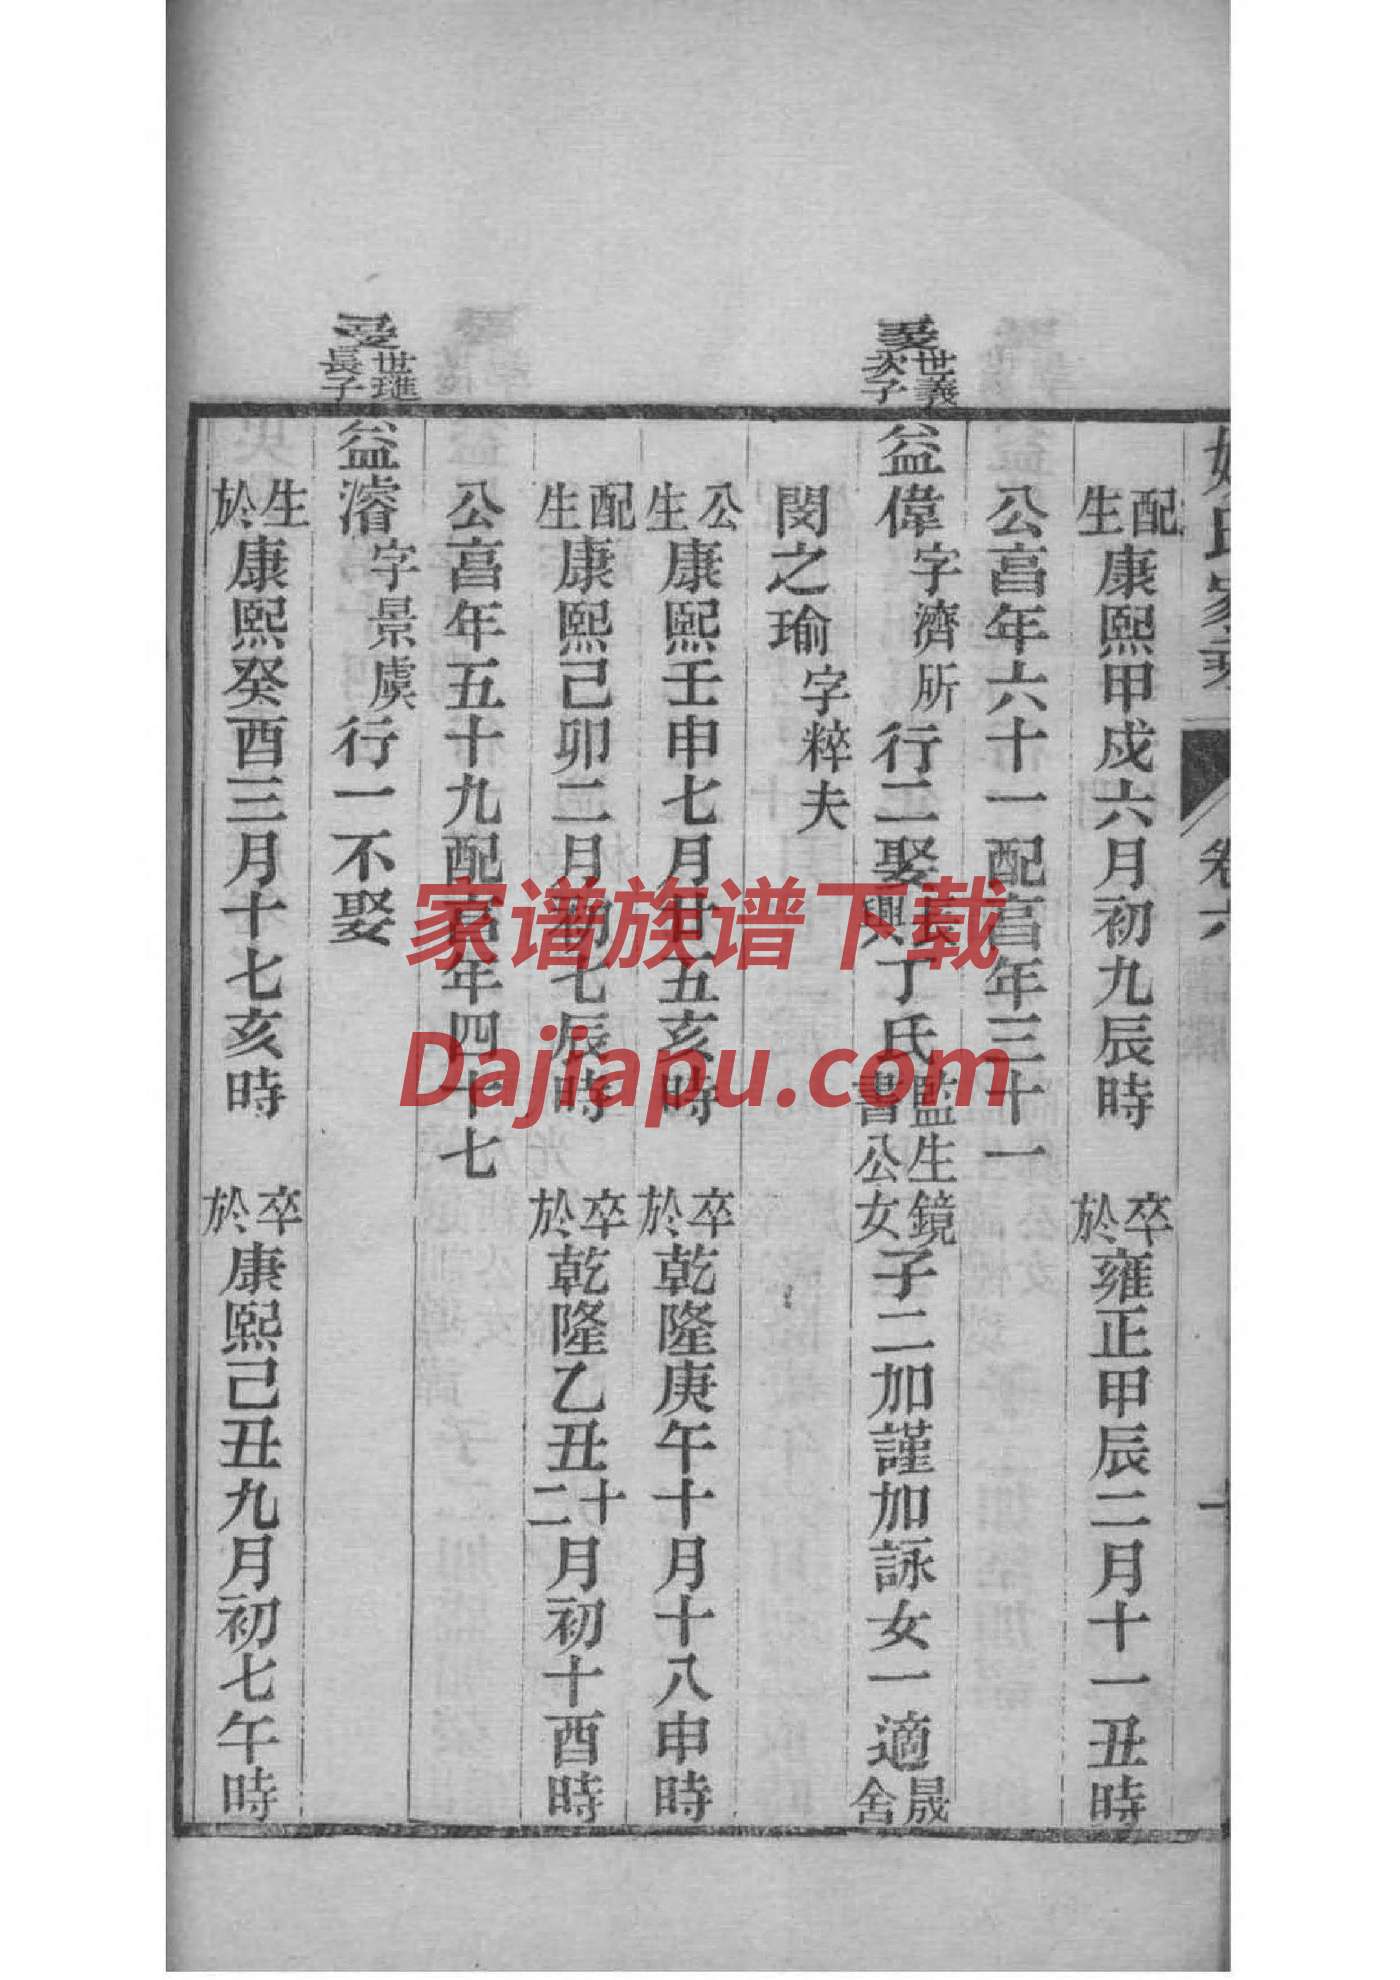 氏家乘 卷六
配生康熙甲戍六月初九辰時 卒於雍正甲辰二月十一丑時
公亯年六十一配亯年三十一
爰世義次子 益偉字濟所行二娶長興丁氏監生鏡書公女子二加謹加詠女一適晟舍
閔之瑜字粹夫
公生康熙壬申七月廿五亥時 卒於乾隆庚午十月十八申時
配生康熙己卯二月初七辰時 卒於乾隆乙丑十二月初十酉時
公亯年五十九配亯年四十七
爰世璡長子 益濬字景虞行一不娶
生於康熙癸酉三月十七亥時 卒於康熙己丑九月初七午時
家谱族谱下载
Dajiapu.com